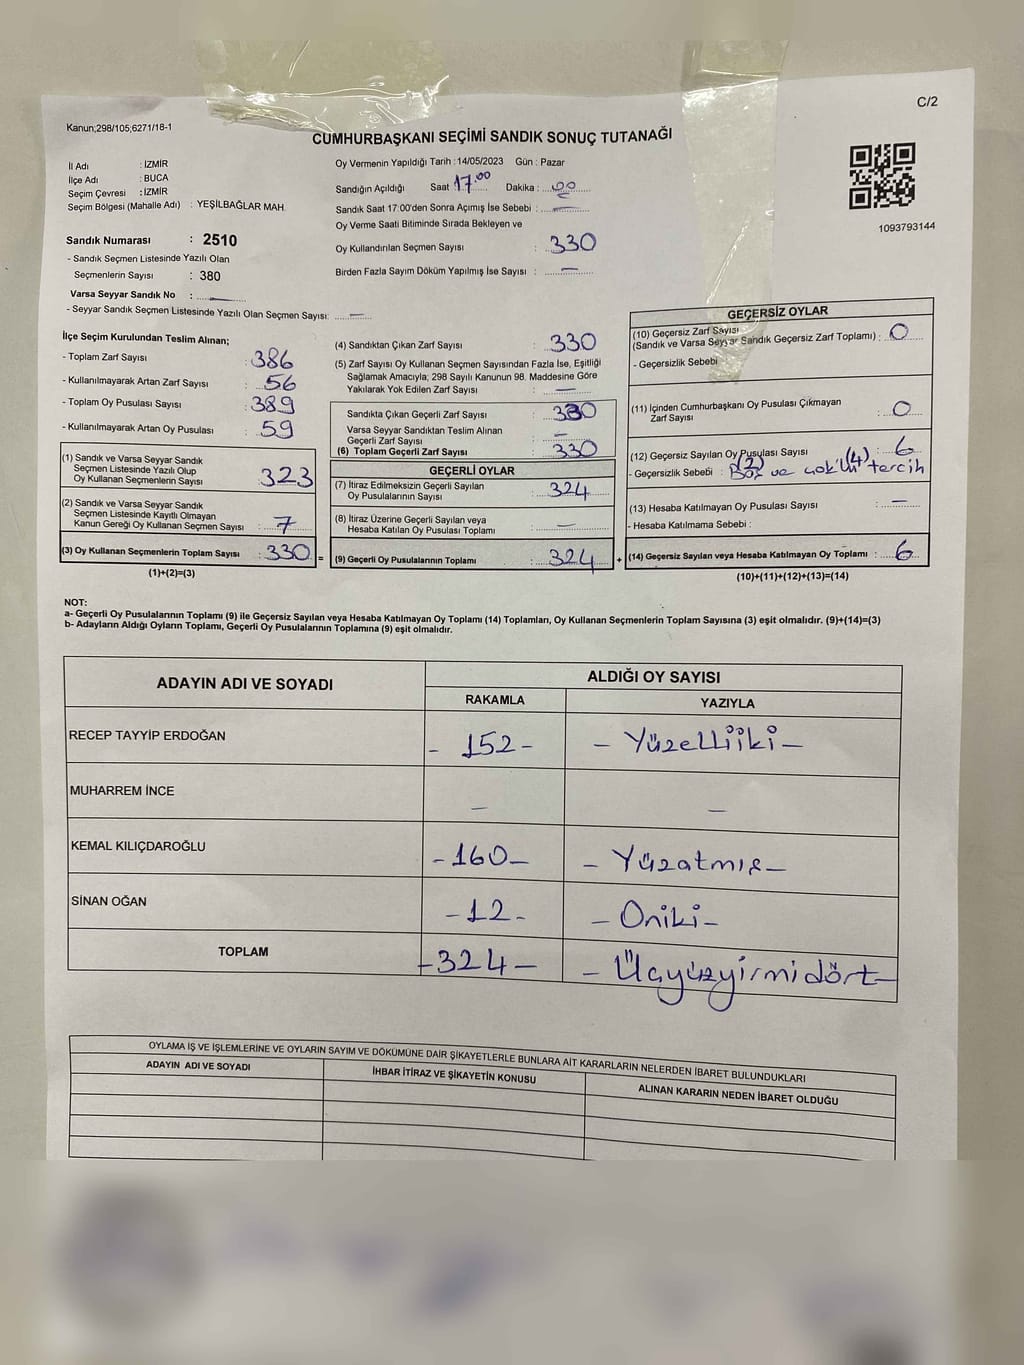 C/2
Kanun;298/105;6271/18-1
CUMHURBAŞKANI SEÇİMİ SANDIK SONUÇ TUTANAĞI
İl Adı : İZMİR
İlçe Adı : BUCA
Seçim Çevresi : İZMİR
Seçim Bölgesi (Mahalle Adı) : YEŞİLBAĞLAR MAH.
Sandık Numarası : 2510
- Sandık Seçmen Listesinde Yazılı Olan
Seçmenlerin Sayısı : 380
Varsa Seyyar Sandık No : —
- Seyyar Sandık Seçmen Listesinde Yazılı Olan Seçmen Sayısı: —
Oy Vermenin Yapıldığı Tarih : 14/05/2023 Gün : Pazar
Sandığın Açıldığı Saat 17.00 Dakika : 00
Sandık Saat 17:00'den Sonra Açımış İse Sebebi : —
Oy Verme Saati Bitiminde Sırada Bekleyen ve
Oy Kullandırılan Seçmen Sayısı : 330
Birden Fazla Sayım Döküm Yapılmış İse Sayısı : —
1093793144
İlçe Seçim Kurulundan Teslim Alınan;
- Toplam Zarf Sayısı : 386
- Kullanılmayarak Artan Zarf Sayısı : 56
- Toplam Oy Pusulası Sayısı : 389
- Kullanılmayarak Artan Oy Pusulası : 59
(1) Sandık ve Varsa Seyyar Sandık
Seçmen Listesinde Yazılı Olup
Oy Kullanan Seçmenlerin Sayısı : 323
(2) Sandık ve Varsa Seyyar Sandık
Seçmen Listesinde Kayıtlı Olmayan
Kanun Gereği Oy Kullanan Seçmen Sayısı : 7
(3) Oy Kullanan Seçmenlerin Toplam Sayısı : 330 =
(1)+(2)=(3)
(4) Sandıktan Çıkan Zarf Sayısı : 330
(5) Zarf Sayısı Oy Kullanan Seçmen Sayısından Fazla İse, Eşitliği
Sağlamak Amacıyla; 298 Sayılı Kanunun 98. Maddesine Göre
Yakılarak Yok Edilen Zarf Sayısı : —
Sandıkta Çıkan Geçerli Zarf Sayısı : 330
Varsa Seyyar Sandıktan Teslim Alınan
Geçerli Zarf Sayısı : —
(6) Toplam Geçerli Zarf Sayısı : 330
GEÇERLİ OYLAR
(7) İtiraz Edilmeksizin Geçerli Sayılan
Oy Pusulalarının Sayısı : 324
(8) İtiraz Üzerine Geçerli Sayılan veya
Hesaba Katılan Oy Pusulası Toplamı : —
(9) Geçerli Oy Pusulalarının Toplamı : 324 +
GEÇERSİZ OYLAR
(10) Geçersiz Zarf Sayısı
(Sandık ve Varsa Seyyar Sandık Geçersiz Zarf Toplamı) : 0
- Geçersizlik Sebebi :
(11) İçinden Cumhurbaşkanı Oy Pusulası Çıkmayan
Zarf Sayısı : 0
(12) Geçersiz Sayılan Oy Pusulası Sayısı : 6
- Geçersizlik Sebebi : (2) Boş ve (4) çok'lu tercih
(13) Hesaba Katılmayan Oy Pusulası Sayısı : —
- Hesaba Katılmama Sebebi :
(14) Geçersiz Sayılan veya Hesaba Katılmayan Oy Toplamı : 6
(10)+(11)+(12)+(13)=(14)
NOT:
a- Geçerli Oy Pusulalarının Toplamı (9) ile Geçersiz Sayılan veya Hesaba Katılmayan Oy Toplamı (14) Toplamları, Oy Kullanan Seçmenlerin Toplam Sayısına (3) eşit olmalıdır. (9)+(14)=(3)
b- Adayların Aldığı Oyların Toplamı, Geçerli Oy Pusulalarının Toplamına (9) eşit olmalıdır.
ADAYIN ADI VE SOYADI ALDIĞI OY SAYISI
RAKAMLA YAZIYLA
RECEP TAYYİP ERDOĞAN - 152 - - Yüzelliiki -
MUHARREM İNCE — —
KEMAL KILIÇDAROĞLU - 160 - - Yüzatmış -
SİNAN OĞAN - 12 - - Oniki -
TOPLAM - 324 - - Üçyüzyirmidört -
OYLAMA İŞ VE İŞLEMLERİNE VE OYLARIN SAYIM VE DÖKÜMÜNE DAİR ŞİKAYETLERLE BUNLARA AİT KARARLARIN NELERDEN İBARET BULUNDUKLARI
ADAYIN ADI VE SOYADI İHBAR İTİRAZ VE ŞİKAYETİN KONUSU ALINAN KARARIN NEDEN İBARET OLDUĞU